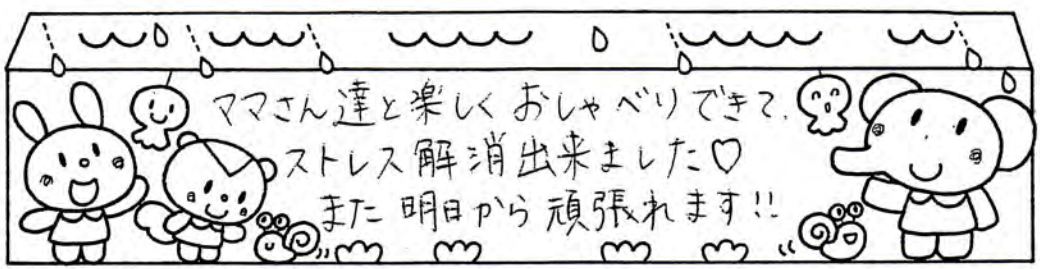 ママさん達と楽しくおしゃべりできて、
ストレス解消出来ました♡
また明日から頑張れます!!